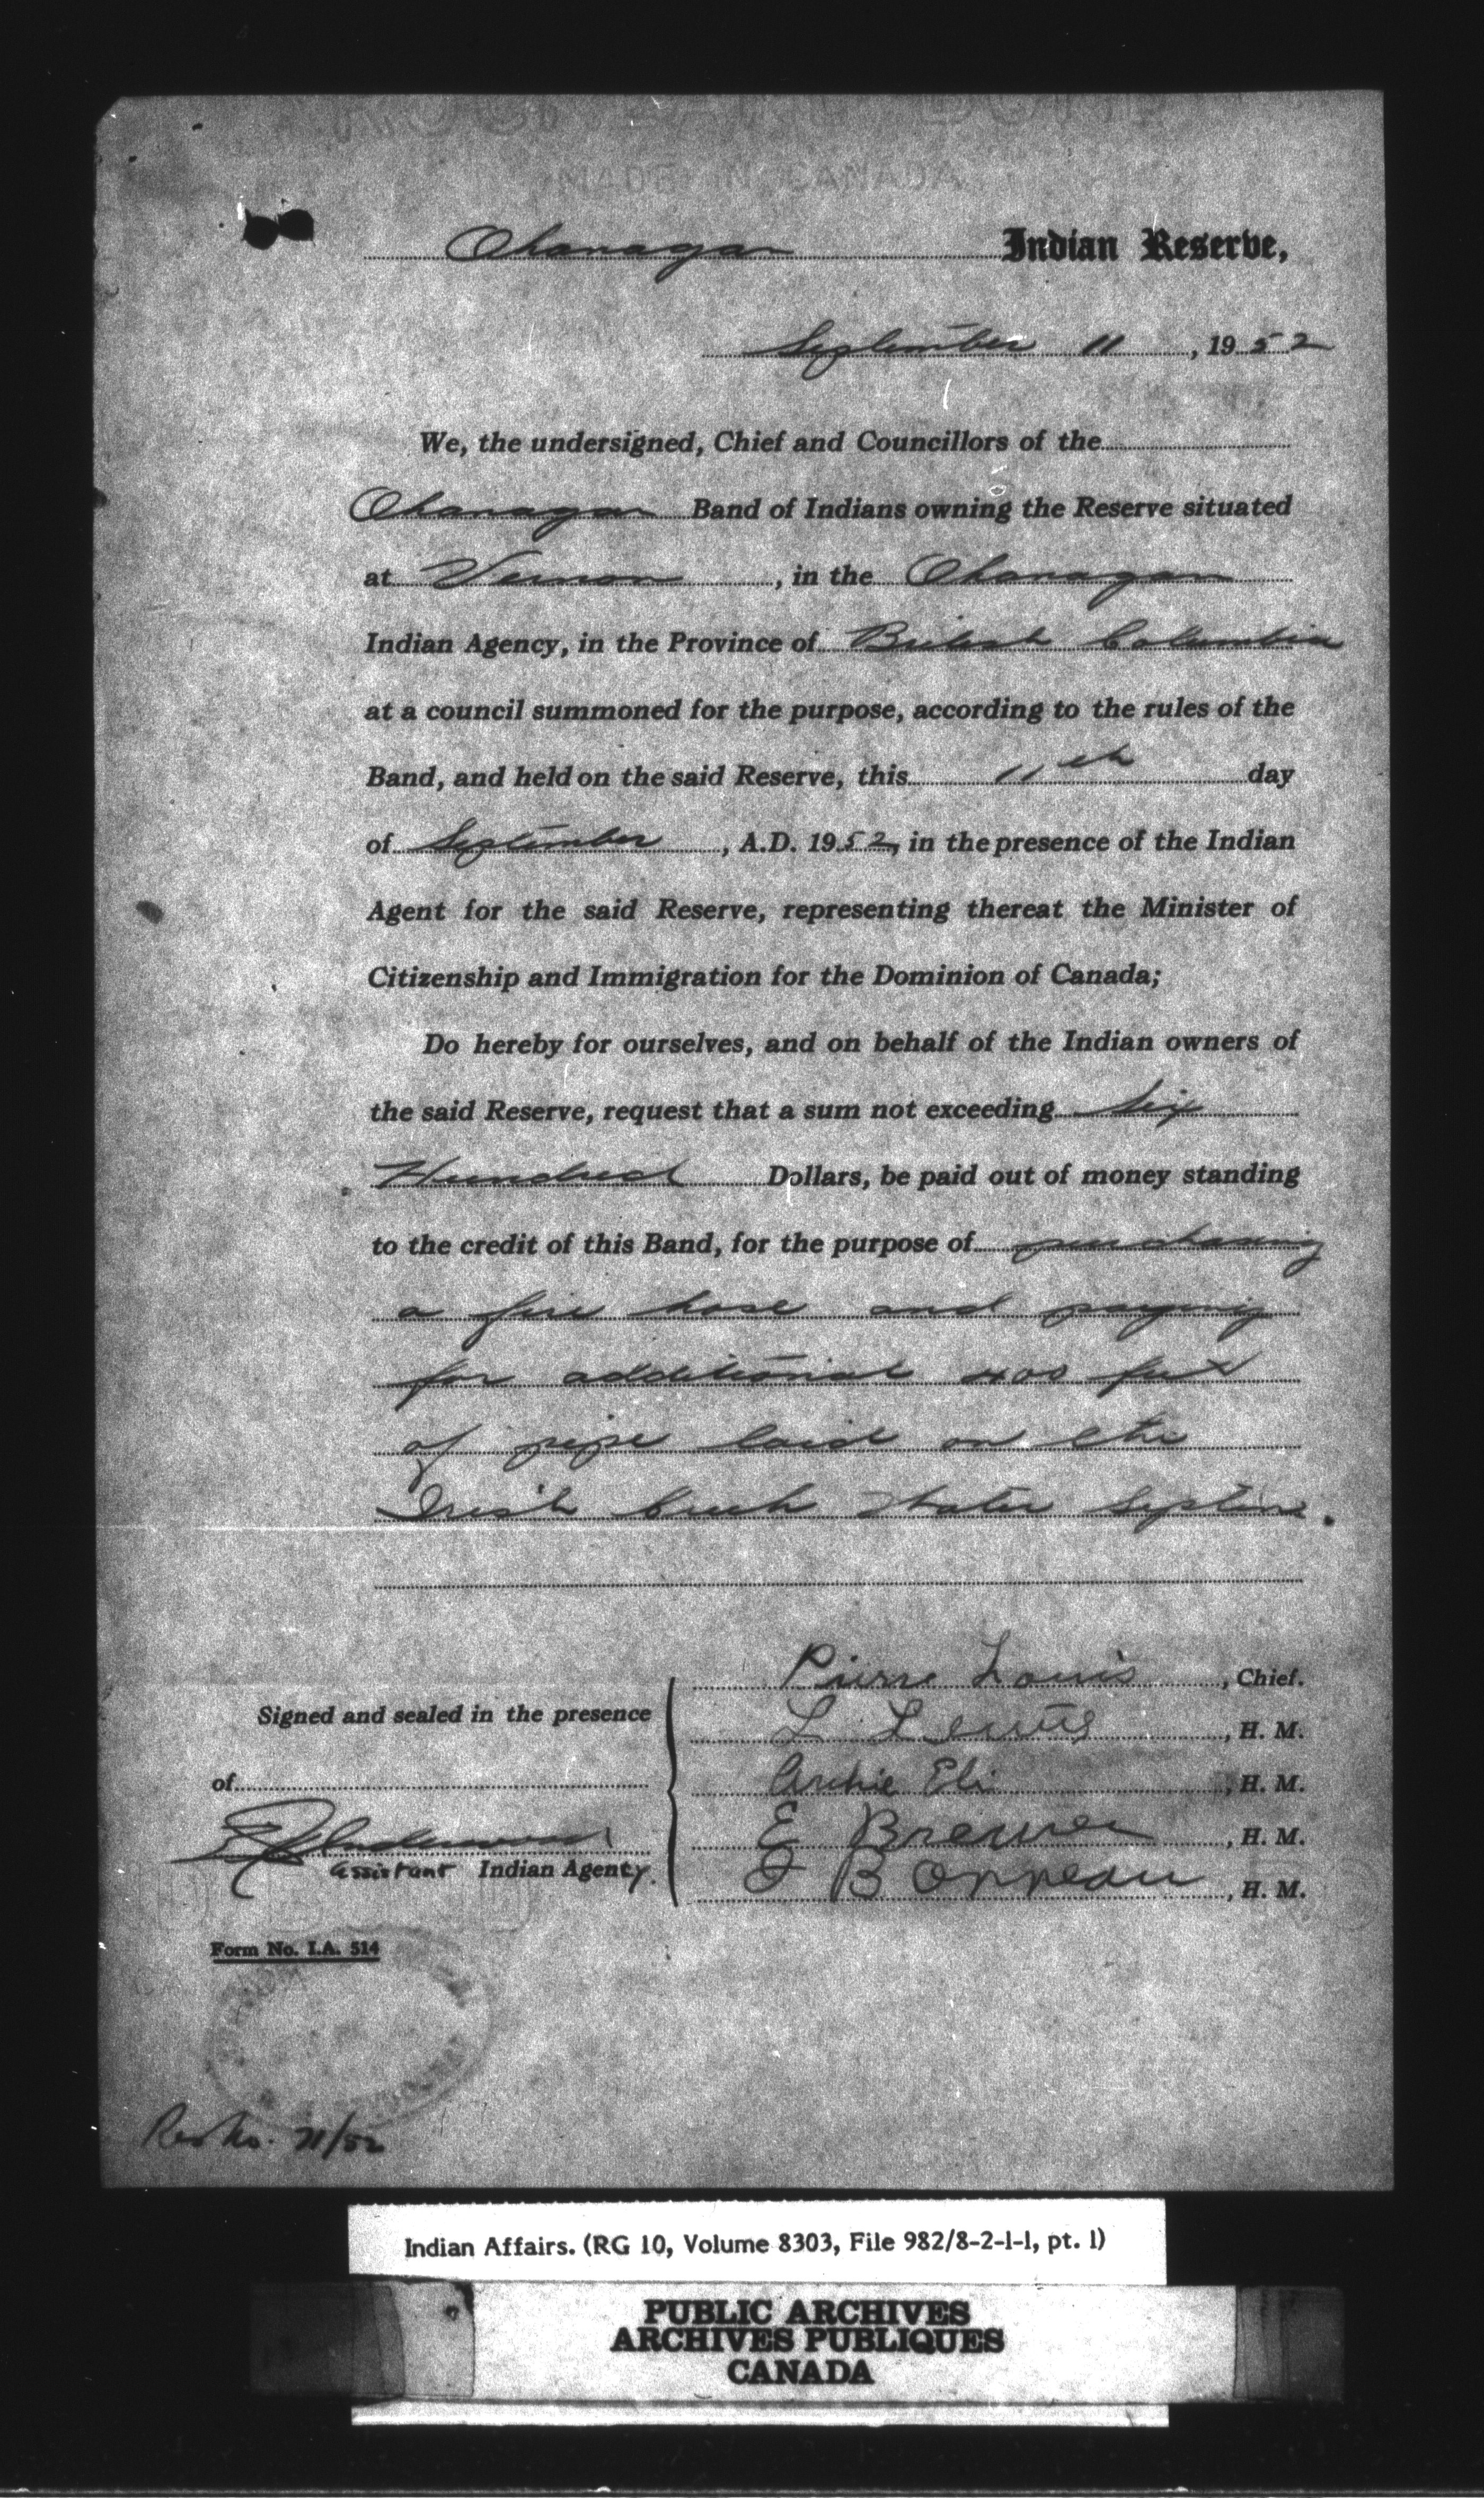 MADE IN CANADA
Okanagan Indian Reserve,
September 11, 1952
We, the undersigned, Chief and Councillors of the
Okanagan Band of Indians owning the Reserve situated
at Vernon, in the Okanagan
Indian Agency, in the Province of British Columbia
at a council summoned for the purpose, according to the rules of the
Band, and held on the said Reserve, this 11th day
of September, A.D. 1952, in the presence of the Indian
Agent for the said Reserve, representing thereat the Minister of
Citizenship and Immigration for the Dominion of Canada;
Do hereby for ourselves, and on behalf of the Indian owners of
the said Reserve, request that a sum not exceeding Six
Hundred Dollars, be paid out of money standing
to the credit of this Band, for the purpose of purchasing
a fire hose and paying
for additional 400 feet
of pipe laid on the
Irish Creek Water System.
Pierre Louis, Chief.
Signed and sealed in the presence
L. Lewis, H. M.
of
Archie Eli, H. M.
E Brewer, H. M.
Assistant Indian Agency.
Bonneau, H. M.
Form No. I.A. 514
Res No. 71/52
Indian Affairs. (RG 10, Volume 8303, File 982/8-2-1-1, pt. 1)
PUBLIC ARCHIVES
ARCHIVES PUBLIQUES
CANADA